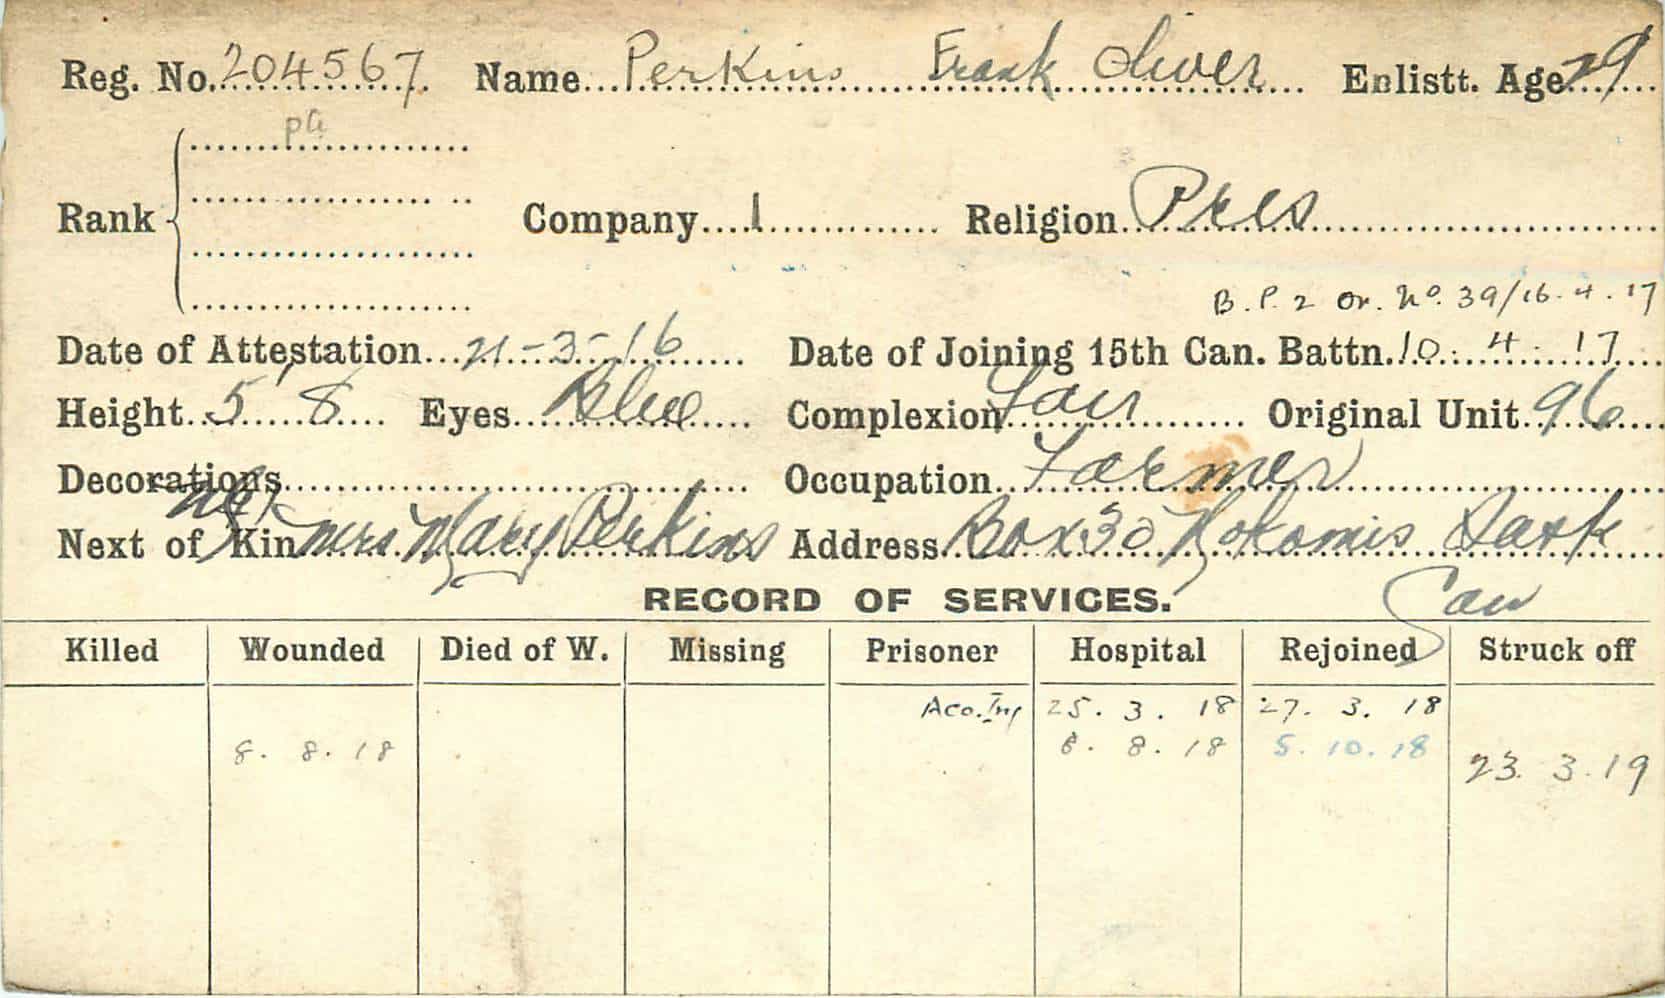 Reg. No. 204567 Name Perkins Frank Oliver Enlistt. Age 29
Rank Company 1 Religion Pres
B.P.2 Or. No. 39/16.4.17
Date of Attestation 21-3-16 Date of Joining 15th Can. Battn. 10.4.17
Height 5'8 Eyes Blue Complexion Fair Original Unit 96
Decorations Occupation Farmer
Next of Kin Mrs. Mary Perkins Address Box 30 Nokomis Sask
Can
RECORD OF SERVICES.
Killed Wounded Died of W. Missing Prisoner Hospital Rejoined Struck off
Acc. Inj 25. 3. 18 27. 3. 18
8. 8. 18 8. 8. 18 5. 10. 18
23. 3. 19